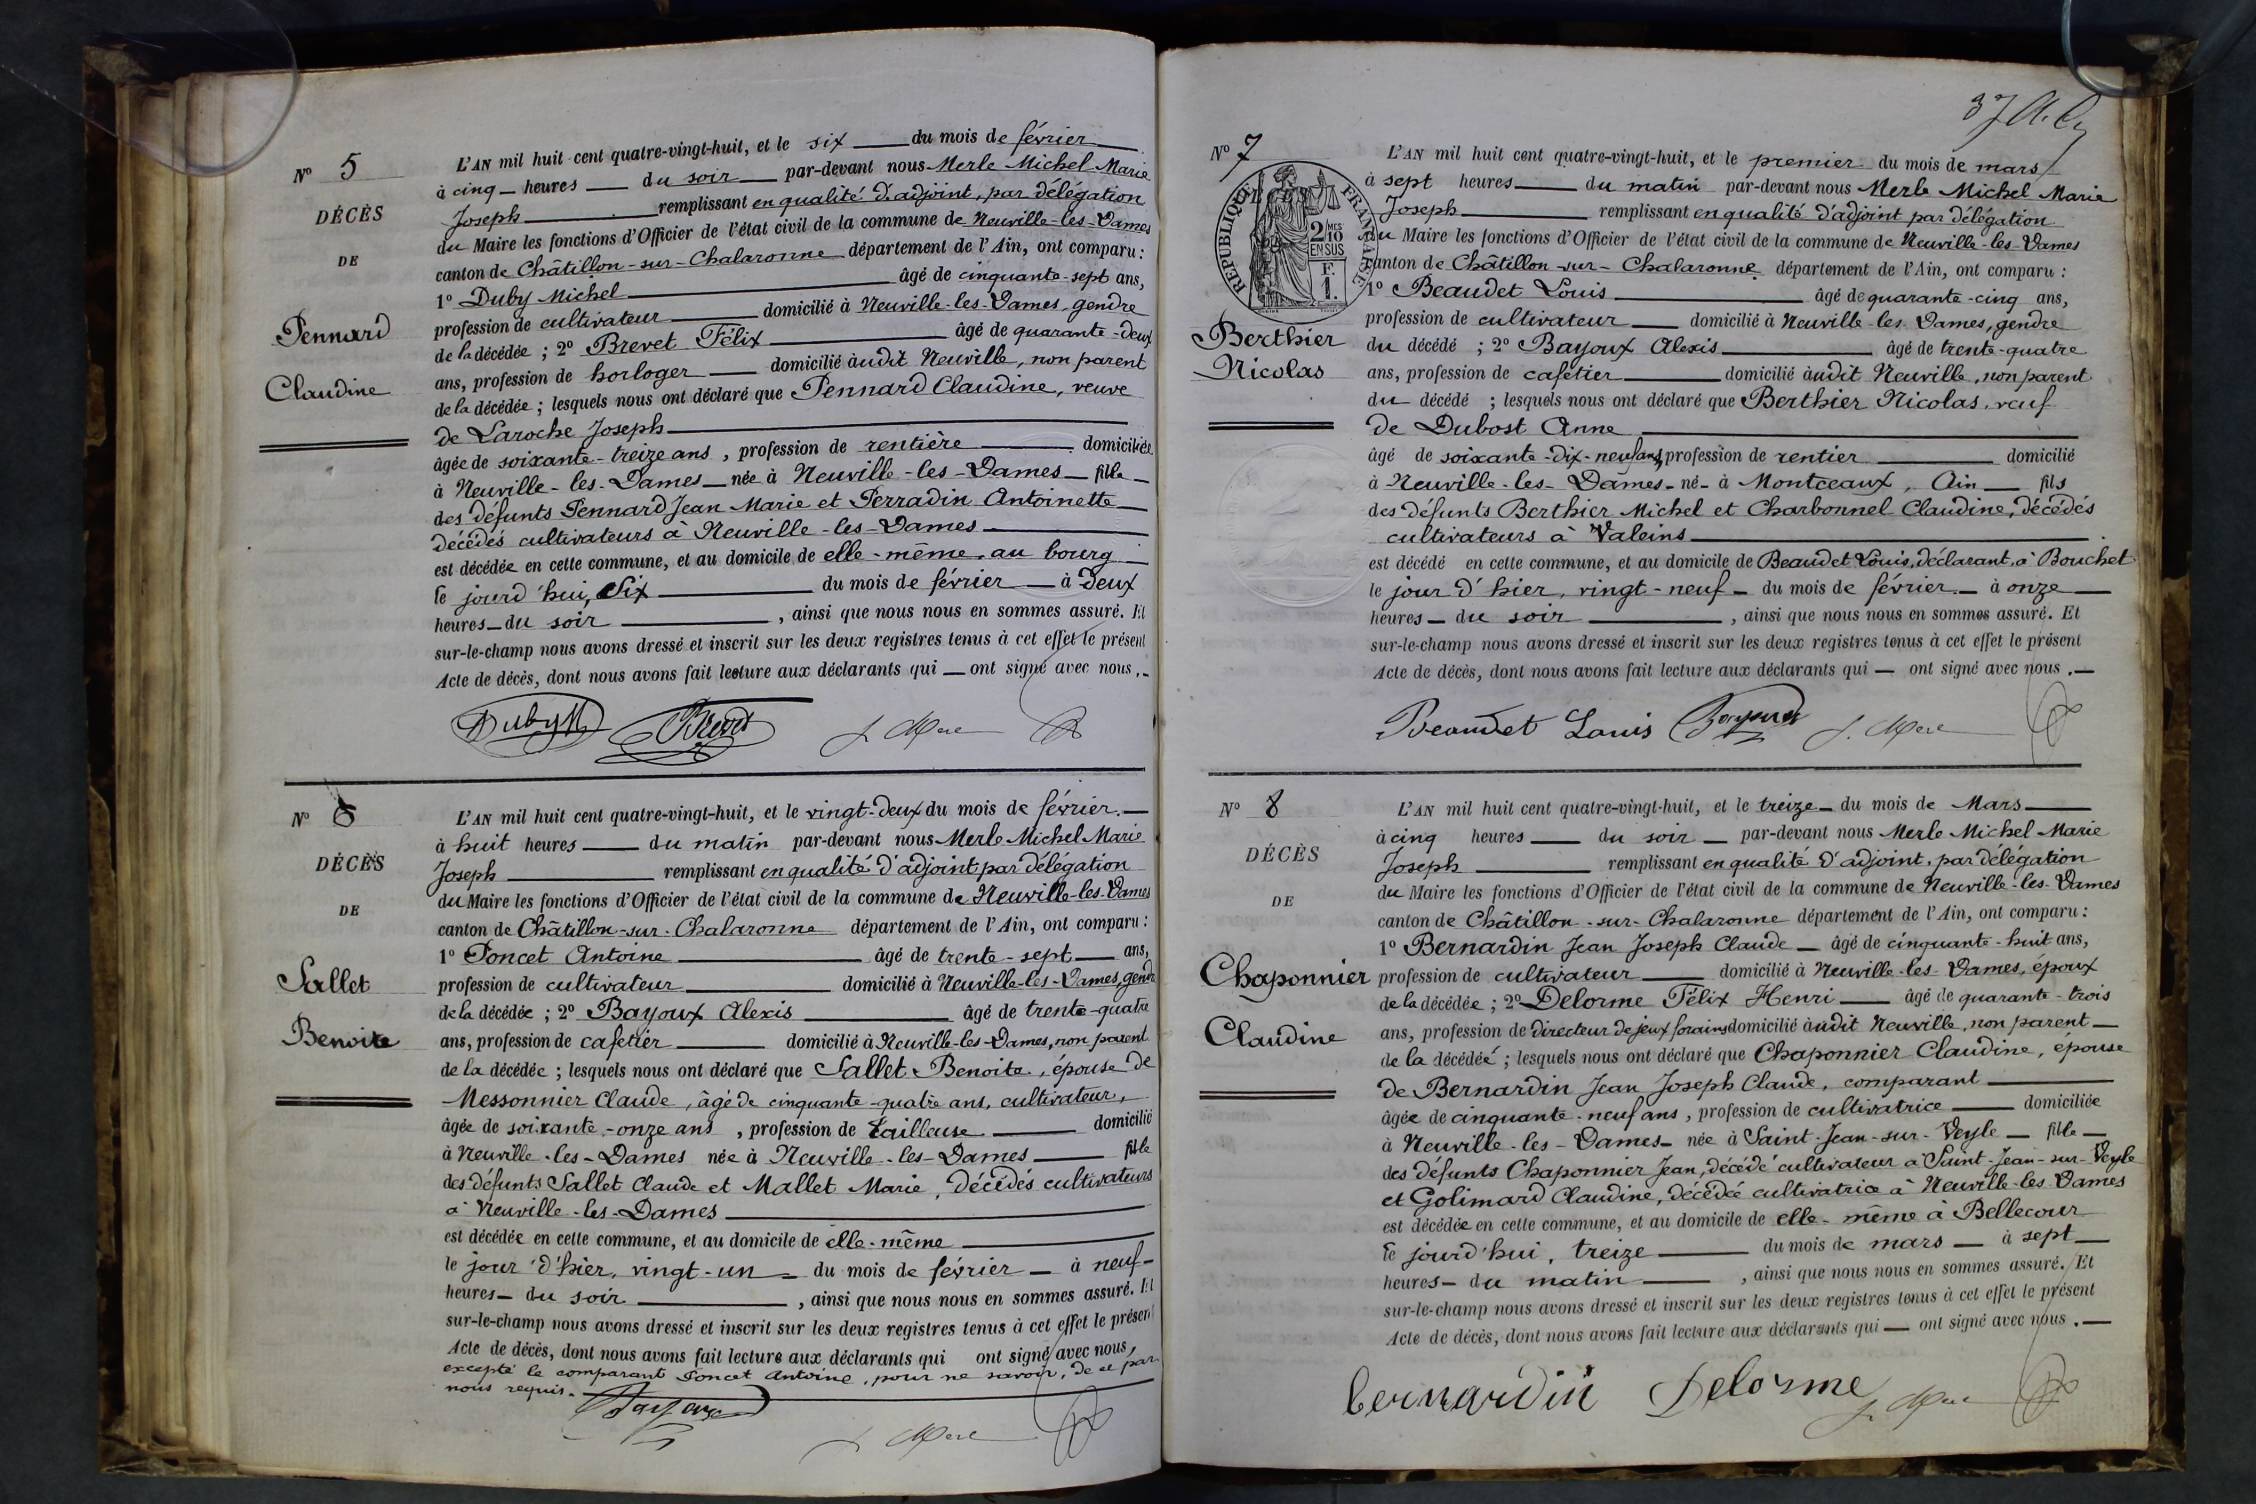 N° 5
DÉCÈS
DE
Pennard
Claudine
L'AN mil huit cent quatre-vingt-huit, et le six du mois de février
à cinq heures du soir par-devant nous Merle Michel Marie
Joseph remplissant en qualité d'adjoint, par délégation
du Maire les fonctions d'Officier de l'état civil de la commune de Neuville-les-Dames
canton de Châtillon-sur-Chalaronne département de l'Ain, ont comparu :
1° Duby Michel âgé de cinquante-sept ans,
profession de cultivateur domicilié à Neuville-les-Dames, gendre
de la décédée ; 2° Brevet Félix âgé de quarante-deux
ans, profession de horloger domicilié àudit Neuville, non parent
de la décédée ; lesquels nous ont déclaré que Pennard Claudine, veuve
de Laroche Joseph
âgée de soixante-treize ans, profession de rentière domiciliée
à Neuville-les-Dames née à Neuville-les-Dames fille
des défunts Pennard Jean Marie et Perradin Antoinette
décédés cultivateurs à Neuville-les-Dames
est décédée en cette commune, et au domicile de elle-même, au bourg
le jourd'hui, Six du mois de février à deux
heures du soir, ainsi que nous nous en sommes assuré. Et
sur-le-champ nous avons dressé et inscrit sur les deux registres tenus à cet effet le présent
Acte de décès, dont nous avons fait lecture aux déclarants qui ont signé avec nous.
Duby M Brevet
N° 6
DÉCÈS
DE
Sallet
Benoite
L'AN mil huit cent quatre-vingt-huit, et le vingt-deux du mois de février.
à huit heures du matin par-devant nous Merle Michel Marie
Joseph remplissant en qualité d'adjoint par délégation
du Maire les fonctions d'Officier de l'état civil de la commune de Neuville-les-Dames
canton de Châtillon-sur-Chalaronne département de l'Ain, ont comparu :
1° Poncet Antoine âgé de trente-sept ans,
profession de cultivateur domicilié à Neuville-les-Dames, gendre
de la décédée ; 2° Bayoux Alexis âgé de trente-quatre
ans, profession de cafetier domicilié à Neuville-les-Dames, non parent
de la décédée ; lesquels nous ont déclaré que Sallet Benoite, épouse de
Messonnier Claude, âgé de cinquante-quatre ans, cultivateur,
âgée de soixante-onze ans, profession de tailleuse domicilié
à Neuville-les-Dames née à Neuville-les-Dames fille
des défunts Sallet Claude et Mallet Marie, décédés cultivateurs
à Neuville-les-Dames
est décédée en cette commune, et au domicile de elle-même
le jour d'hier, vingt-un du mois de février à neuf
heures du soir, ainsi que nous nous en sommes assuré. Et
sur-le-champ nous avons dressé et inscrit sur les deux registres tenus à cet effet le présent
Acte de décès, dont nous avons fait lecture aux déclarants qui ont signé avec nous,
excepté le comparant Poncet Antoine, pour ne savoir, de ce par
nous requis.
37
N° 7
RÉPUBLIQUE FRANÇAISE
2/10 MES EN SUS
F. 1.
Berthier
Nicolas
L'AN mil huit cent quatre-vingt-huit, et le premier du mois de mars
à sept heures du matin par-devant nous Merle Michel Marie
Joseph remplissant en qualité d'adjoint par délégation
du Maire les fonctions d'Officier de l'état civil de la commune de Neuville-les-Dames
canton de Châtillon-sur-Chalaronne département de l'Ain, ont comparu :
1° Beaudet Louis âgé de quarante-cinq ans,
profession de cultivateur domicilié à Neuville-les-Dames, gendre
du décédé ; 2° Bayoux Alexis âgé de trente-quatre
ans, profession de cafetier domicilié àudit Neuville, non parent
du décédé ; lesquels nous ont déclaré que Berthier Nicolas, veuf
de Dubost Anne
âgé de soixante-dix-neuf ans, profession de rentier domicilié
à Neuville-les-Dames né à Montceaux, Ain fils
des défunts Berthier Michel et Charbonnel Claudine, décédés
cultivateurs à Valeins
est décédé en cette commune, et au domicile de Beaudet Louis, déclarant, à Bouchet
le jour d'hier, vingt-neuf du mois de février à onze
heures du soir, ainsi que nous nous en sommes assuré. Et
sur-le-champ nous avons dressé et inscrit sur les deux registres tenus à cet effet le présent
Acte de décès, dont nous avons fait lecture aux déclarants qui ont signé avec nous.
Beaudet Louis
N° 8
DÉCÈS
DE
Chaponnier
Claudine
L'AN mil huit cent quatre-vingt-huit, et le treize du mois de Mars
à cinq heures du soir par-devant nous Merle Michel Marie
Joseph remplissant en qualité d'adjoint, par délégation
du Maire les fonctions d'Officier de l'état civil de la commune de Neuville-les-Dames
canton de Châtillon-sur-Chalaronne département de l'Ain, ont comparu :
1° Bernardin Jean Joseph Claude âgé de cinquante-huit ans,
profession de cultivateur domicilié à Neuville-les-Dames, époux
de la décédée ; 2° Delorme Félix Henri âgé de quarante-trois
ans, profession de directeur de jeux forains domicilié àudit Neuville, non parent
de la décédée ; lesquels nous ont déclaré que Chaponnier Claudine, épouse
de Bernardin Jean Joseph Claude, comparant
âgée de cinquante-neuf ans, profession de cultivatrice domiciliée
à Neuville-les-Dames née à Saint-Jean-sur-Veyle fille
des défunts Chaponnier Jean, décédé cultivateur à Saint-Jean-sur-Veyle
et Golimard Claudine, décédée cultivatrice à Neuville-les-Dames
est décédée en cette commune, et au domicile de elle-même à Bellecour
le jourd'hui, treize du mois de mars à sept
heures du matin, ainsi que nous nous en sommes assuré. Et
sur-le-champ nous avons dressé et inscrit sur les deux registres tenus à cet effet le présent
Acte de décès, dont nous avons fait lecture aux déclarants qui ont signé avec nous.
bernardin Delorme